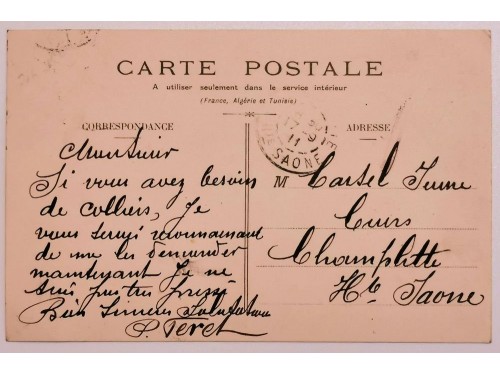 CARTE POSTALE
A utiliser seulement dans le service intérieur
(France, Algérie et Tunisie)
CORRESPONDANCE
ADRESSE
Monsieur
Si vous avez besoin
de colliers, Je
vous serai reconnaissant
de me les demander
maintenant Je ne
suis pas très pressé
Bien Sincères Salutations
P. Feret
M Cartel Jeune
Cuirs
Champlitte
Hte Saone
17-9
11
SAONE